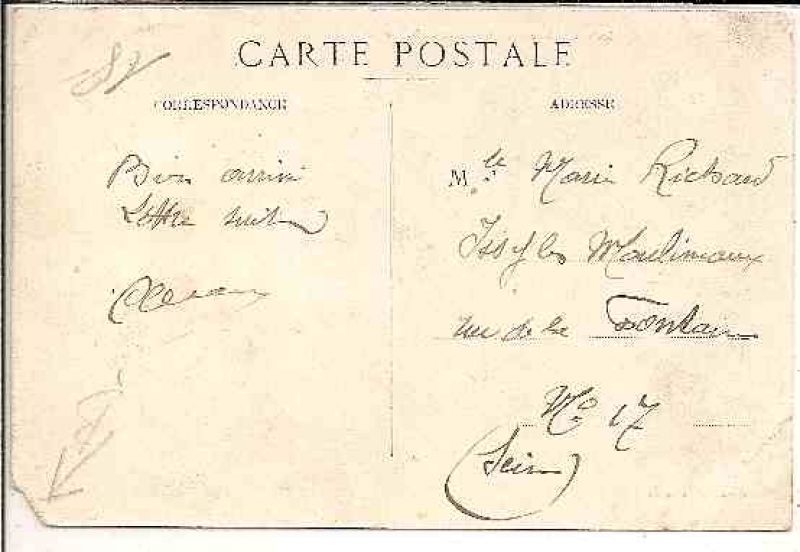 CARTE POSTALE
CORRESPONDANCE
ADRESSE
Bien arrivé
Lettre suit
Mlle Marie Richard
Issy les Moulineaux
rue de la Fontaine
No 17
(Seine)